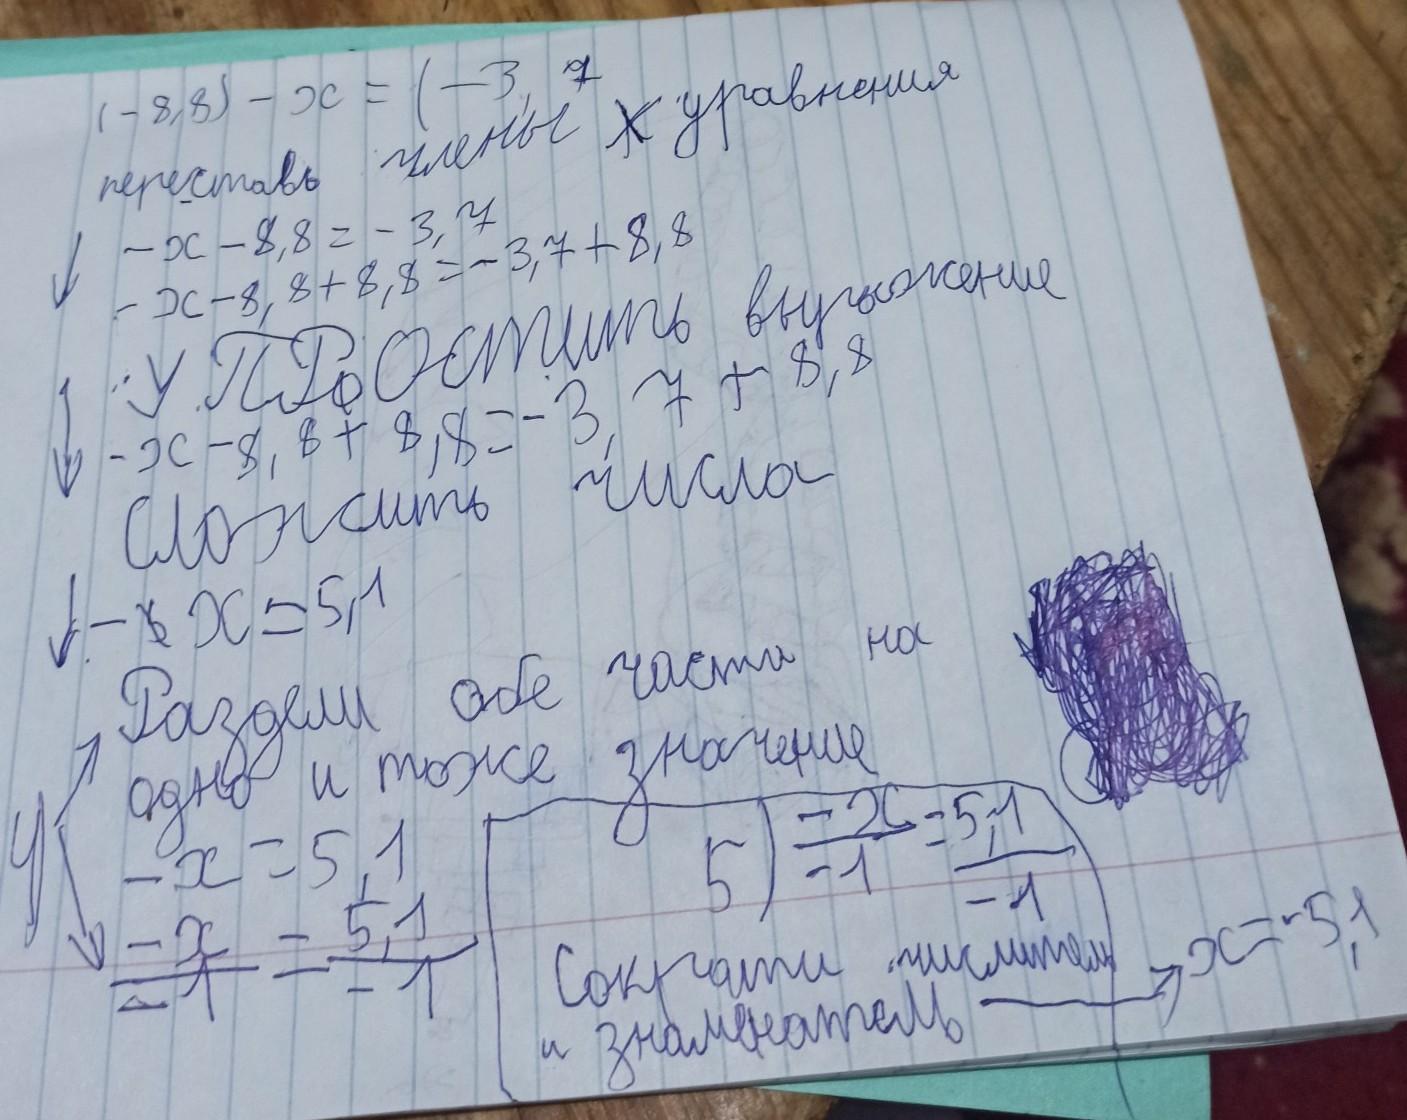 (-8,8) - x = (-3,7
переставь члены уравнения
-x-8,8=-3,7
-x-8,8+8,8=-3,7+8,8
УПРОстить выражение
-x-8,8+8,8=-3,7+8,8
Сложить числа
- x=5,1
Раздели обе части на
одно и тоже значение
4
-x=5,1
-x/-1 = 5,1/-1
5) -x/-1 = 5,1/-1
Сократи числитель
и знаменатель → x=-5,1